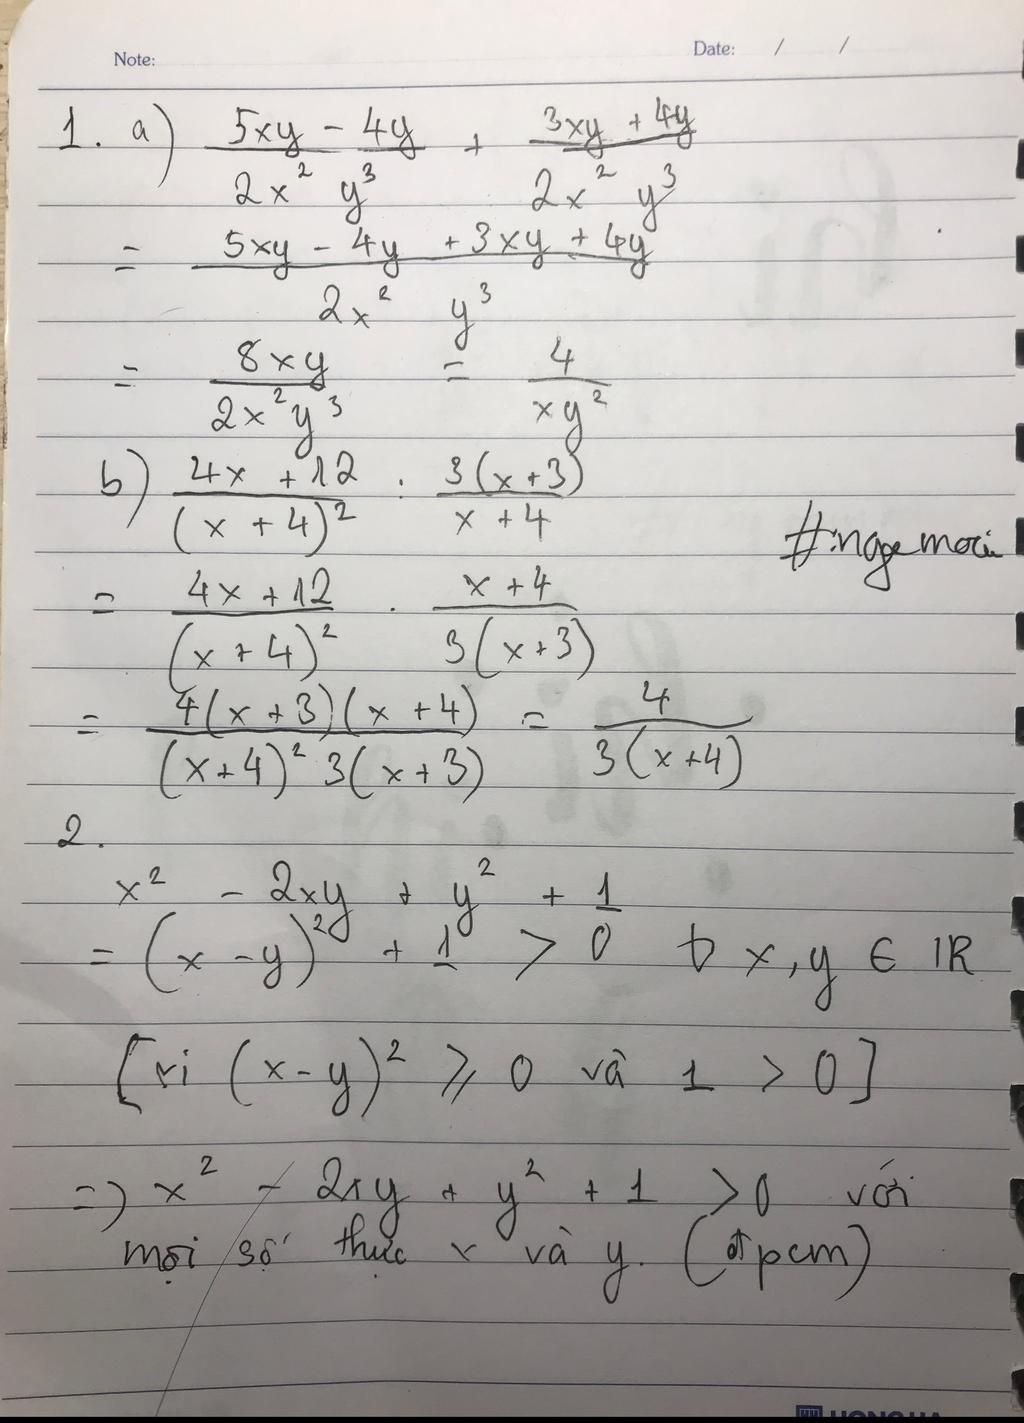 Note: Date: / /
1. a) (5xy - 4y)/(2x² y³) + (3xy + 4y)/(2x² y³)
= (5xy - 4y + 3xy + 4y)/(2x² y³)
= (8xy)/(2x²y³) = 4/(xy²)
b) (4x + 12)/((x + 4)²) : (3(x+3))/(x + 4)
= (4x + 12)/((x + 4)²) . (x + 4)/(3(x+3))
= (4(x + 3)(x + 4))/((x+4)² 3(x + 3)) = 4/(3(x+4))
2.
x² - 2xy + y² + 1
= (x - y)² + 1 > 0 ∀ x, y ∈ IR
[vì (x - y)² ⩾ 0 và 1 > 0]
=) x² - 2xy + y² + 1 > 0 với
mọi số thực x và y. (đpcm)
HONG HA